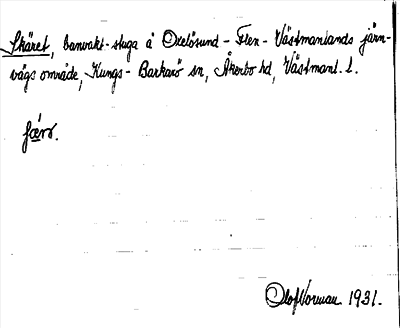 Skäret, banvakt-stuga å Oxelösund - Flen - Västmanlands järn-
vägs område, Kungs- Barkarö sn, Åkerbo hd, Västmanl. l.
Olof Norman 1931.